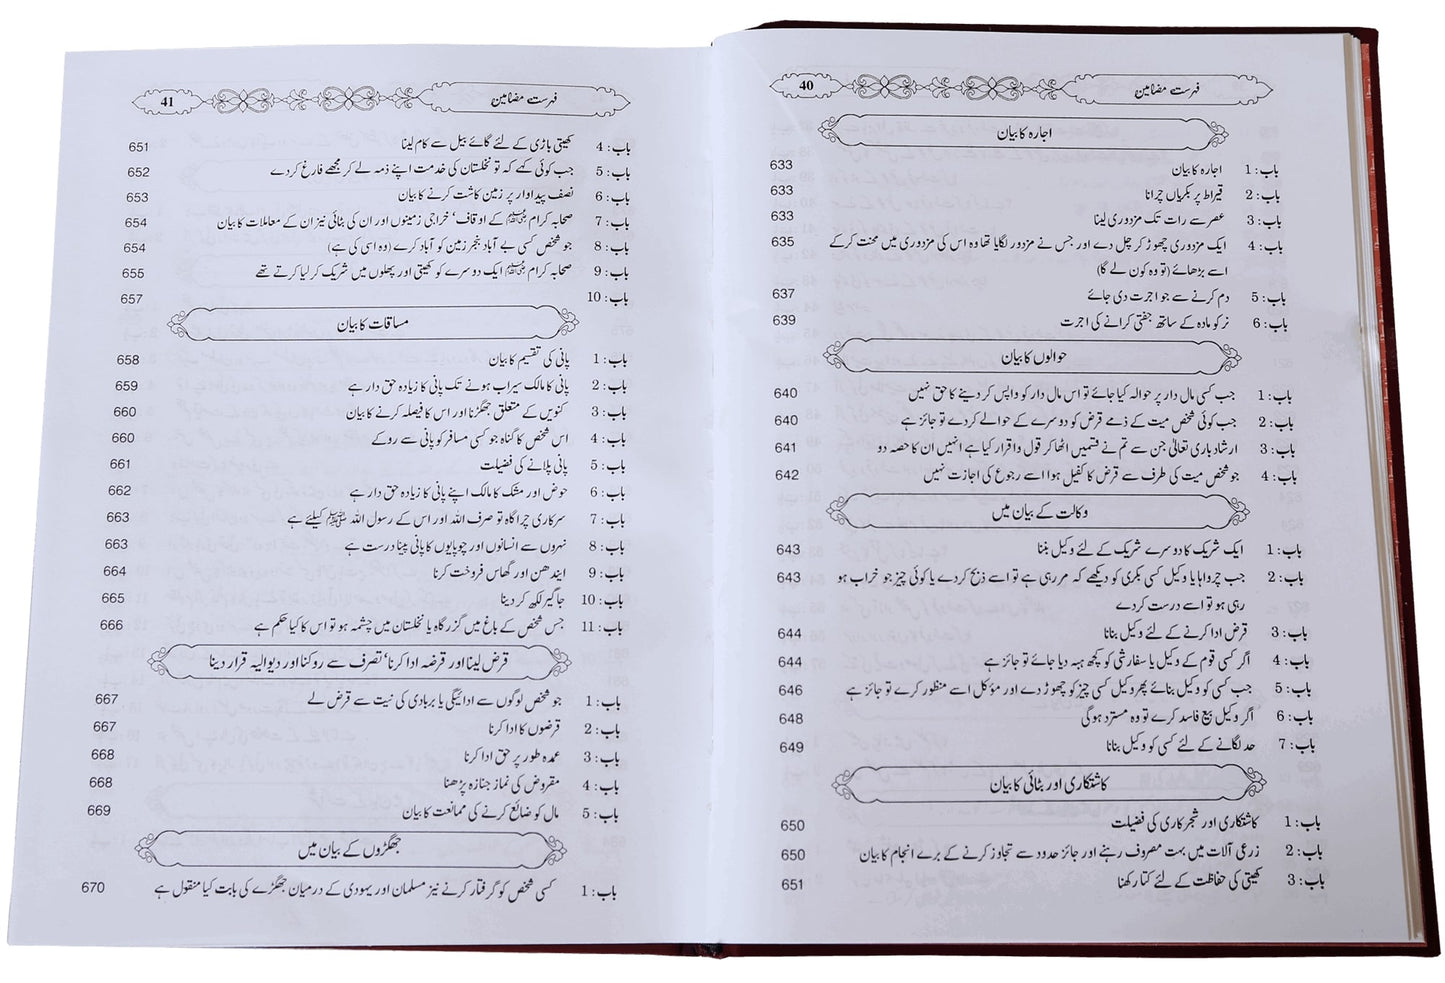 فہرست مضامین 40
اجارہ کا بیان
باب: 1 اجارہ کا بیان 633
باب: 2 قیراط پر بکریاں چرانا 633
باب: 3 عصر سے رات تک مزدوری لینا 633
باب: 4 ایک مزدوری چھوڑ کر چل دے اور جس نے مزدور لگایا تھا وہ اس کی مزدوری میں محنت کرکے 635
اسے بڑھائے (تو وہ کون لے گا)
باب: 5 دم کرنے سے جو اجرت دی جائے 637
باب: 6 نر کو مادہ کے ساتھ جفتی کرانے کی اجرت 639
حوالوں کا بیان
باب: 1 جب کسی مال دار پر حوالہ کیا جائے تو اس مال دار کو واپس کر دینے کا حق نہیں 640
باب: 2 جب کوئی شخص میت کے ذمے قرض کو دوسرے کے حوالے کردے تو جائز ہے 640
باب: 3 ارشاد باری تعالیٰ جن سے تم نے قسمیں اٹھا کر قول و اقرار کیا ہے انہیں ان کا حصہ دو 641
باب: 4 جو شخص میت کی طرف سے قرض کا کفیل ہوا اسے رجوع کی اجازت نہیں 642
وکالت کے بیان میں
باب: 1 ایک شریک کا دوسرے شریک کے لئے وکیل بننا 643
باب: 2 جب چرواہا یا وکیل کسی بکری کو دیکھے کہ مر رہی ہے تو اسے ذبح کردے یا کوئی چیز جو خراب ہو 643
رہی ہو تو اسے درست کردے
باب: 3 قرض ادا کرنے کے لئے وکیل بنانا 644
باب: 4 اگر کسی قوم کے وکیل یا سفارشی کو کچھ ہبہ دیا جائے تو جائز ہے 644
باب: 5 جب کسی کو وکیل بنائے پھر وکیل کسی چیز کو چھوڑ دے اور مؤکل اسے منظور کرے تو جائز ہے 646
باب: 6 اگر وکیل بیع فاسد کرے تو وہ مسترد ہوگی 648
باب: 7 حد لگانے کے لئے کسی کو وکیل بنانا 649
کاشتکاری اور بٹائی کا بیان
باب: 1 کاشتکاری اور شجرکاری کی فضیلت 650
باب: 2 زرعی آلات میں بہت مصروف رہنے اور جائز حدود سے تجاوز کرنے کے برے انجام کا بیان 650
باب: 3 کھیتی کی حفاظت کے لئے کتا رکھنا 651
فہرست مضامین 41
باب: 4 کھیتی باڑی کے لئے گائے بیل سے کام لینا 651
باب: 5 جب کوئی کہے کہ تو نخلستان کی خدمت اپنے ذمہ لے کر مجھے فارغ کردے 652
باب: 6 نصف پیداوار پر زمین کاشت کرنے کا بیان 653
باب: 7 صحابہ کرام ﷺ کے اوقاف، خراجی زمینوں اور ان کی بٹائی نیز ان کے معاملات کا بیان 654
باب: 8 جو شخص کسی بے آباد بنجر زمین کو آباد کرے (وہ اسی کی ہے) 654
باب: 9 صحابہ کرام ﷺ ایک دوسرے کو کھیتی اور پھلوں میں شریک کر لیا کرتے تھے 655
باب: 10 657
مساقات کا بیان
باب: 1 پانی کی تقسیم کا بیان 658
باب: 2 پانی کا مالک سیراب ہونے تک پانی کا زیادہ حق دار ہے 659
باب: 3 کنویں کے متعلق جھگڑنا اور اس کا فیصلہ کرنے کا بیان 660
باب: 4 اس شخص کا گناہ جو کسی مسافر کو پانی سے روکے 660
باب: 5 پانی پلانے کی فضیلت 661
باب: 6 حوض اور مشک کا مالک اپنے پانی کا زیادہ حق دار ہے 662
باب: 7 سرکاری چراگاہ تو صرف اللہ اور اس کے رسول اللہ ﷺ کیلئے ہے 663
باب: 8 نہروں سے انسانوں اور چوپایوں کا پانی پینا درست ہے 663
باب: 9 ایندھن اور گھاس فروخت کرنا 664
باب: 10 جاگیر لکھ کر دینا 665
باب: 11 جس شخص کے باغ میں گزرگاہ یا نخلستان میں چشمہ ہو تو اس کا کیا حکم ہے 666
قرض لینا اور قرضہ ادا کرنا، تصرف سے روکنا اور دیوالیہ قرار دینا
باب: 1 جو شخص لوگوں سے ادائیگی یا بربادی کی نیت سے قرض لے 667
باب: 2 قرضوں کا ادا کرنا 667
باب: 3 عمدہ طور پر حق ادا کرنا 668
باب: 4 مقروض کی نماز جنازہ پڑھنا 668
باب: 5 مال کو ضائع کرنے کی ممانعت کا بیان 669
جھگڑوں کے بیان میں
باب: 1 کسی شخص کو گرفتار کرنے نیز مسلمان اور یہودی کے درمیان جھگڑے کی بابت کیا منقول ہے 670